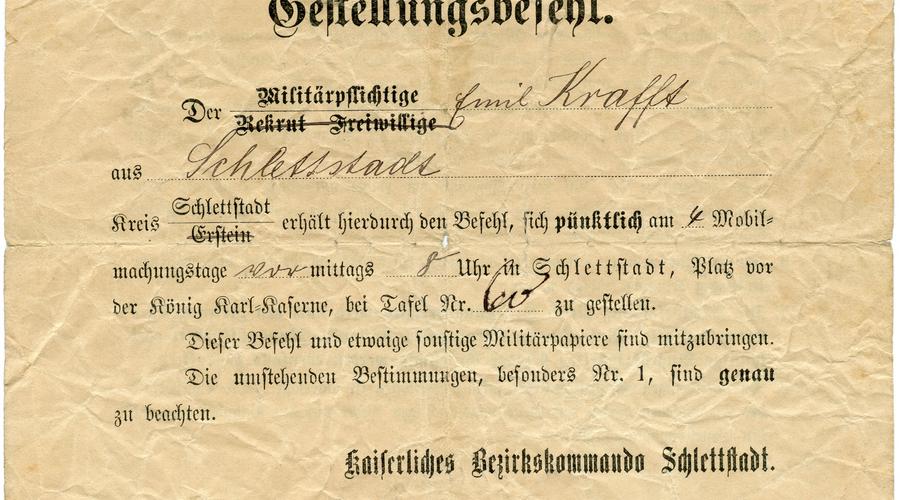 Gestellungsbefehl.
Der Militärpflichtige Emil Krafft
Rekrut Freiwillige
aus Schlettstadt
Kreis Schlettstadt erhält hierdurch den Befehl, sich pünktlich am 4 Mobil=
Erstein
machungstage vormittags 8 Uhr in Schlettstadt, Platz vor
der König Karl=Kaserne, bei Tafel Nr. zu gestellen.
Dieser Befehl und etwaige sonstige Militärpapiere sind mitzubringen.
Die umstehenden Bestimmungen, besonders Nr. 1, sind genau
zu beachten.
Kaiserliches Bezirkskommando Schlettstadt.